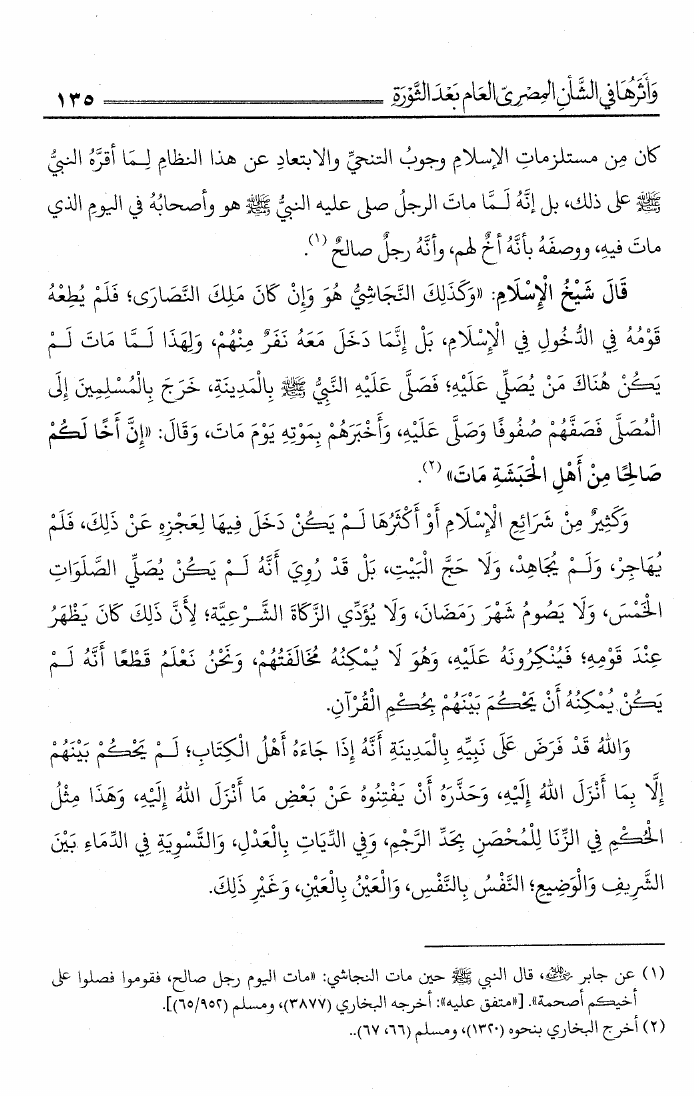 وَأَثَرُهَا فِي الشَّأْنِ المِصْرِيِّ العَام بَعْدَ الثَّوْرَةِ ١٣٥
كان مِن مستلزماتِ الإسلامِ وجوبُ التنحيِّ والابتعادِ عن هذا النظامِ لِـمَا أقرَّهُ النبيُّ
ﷺ على ذلك، بل إنَّهُ لَـمَّا ماتَ الرجلُ صلى عليه النبيُّ ﷺ هو وأصحابُهُ في اليومِ الذي
ماتَ فيهِ، ووصفَهُ بأنَّهُ أخٌ لهم، وأنَّهُ رجلٌ صالحٌ (١).
قَالَ شَيْخُ الْإِسْلَامِ: «وَكَذَلِكَ النَّجَاشِيُّ هُوَ وَإِنْ كَانَ مَلِكَ النَّصَارَى؛ فَلَمْ يُطِعْهُ
قَوْمُهُ فِي الدُّخُولِ فِي الْإِسْلَامِ، بَلْ إِنَّمَا دَخَلَ مَعَهُ نَفَرٌ مِنْهُمْ، وَلِهَذَا لَـمَّا مَاتَ لَـمْ
يَكُنْ هُنَاكَ مَنْ يُصَلِّي عَلَيْهِ؛ فَصَلَّى عَلَيْهِ النَّبِيُّ ﷺ بِالْمَدِينَةِ، خَرَجَ بِالْمُسْلِمِينَ إِلَى
الْمُصَلَّى فَصَفَّهُمْ صُفُوفًا وَصَلَّى عَلَيْهِ، وَأَخْبَرَهُمْ بِمَوْتِهِ يَوْمَ مَاتَ، وَقَالَ: «إِنَّ أَخًا لَكُمْ
صَالِحًا مِنْ أَهْلِ الْحَبَشَةِ مَاتَ» (٢).
وَكَثِيرٌ مِنْ شَرَائِعِ الْإِسْلَامِ أَوْ أَكْثَرُهَا لَـمْ يَكُنْ دَخَلَ فِيهَا لِعَجْزِهِ عَنْ ذَلِكَ، فَلَمْ
يُهَاجِرْ، وَلَـمْ يُجَاهِدْ، وَلَا حَجَّ الْبَيْتِ، بَلْ قَدْ رُوِيَ أَنَّهُ لَـمْ يَكُنْ يُصَلِّي الصَّلَوَاتِ
الْخَمْسَ، وَلَا يَصُومُ شَهْرَ رَمَضَانَ، وَلَا يُؤَدِّي الزَّكَاةَ الشَّـرْعِيَّةَ؛ لِأَنَّ ذَلِكَ كَانَ يَظْهَرُ
عِنْدَ قَوْمِهِ؛ فَيُنْكِرُونَهُ عَلَيْهِ، وَهُوَ لَا يُمْكِنُهُ مُخَالَفَتُهُمْ، وَنَحْنُ نَعْلَمُ قَطْعًا أَنَّهُ لَـمْ
يَكُنْ يُمْكِنُهُ أَنْ يَحْكُمَ بَيْنَهُمْ بِحُكْمِ الْقُرْآنِ.
وَاللهُ قَدْ فَرَضَ عَلَى نَبِيِّهِ بِالْمَدِينَةِ أَنَّهُ إِذَا جَاءَهُ أَهْلُ الْكِتَابِ؛ لَـمْ يَحْكُمْ بَيْنَهُمْ
إِلَّا بِمَا أَنْزَلَ اللهُ إِلَيْهِ، وَحَذَّرَهُ أَنْ يَفْتِنُوهُ عَنْ بَعْضِ مَا أَنْزَلَ اللهُ إِلَيْهِ، وَهَذَا مِثْلُ
الْحُكْمِ فِي الزِّنَا لِلْمُحْصَنِ بِحَدِّ الرَّجْمِ، وَفِي الدِّيَاتِ بِالْعَدْلِ، وَالتَّسْوِيَةِ فِي الدِّمَاءِ بَيْنَ
الشَّرِيفِ وَالْوَضِيعِ؛ النَّفْسُ بِالنَّفْسِ، وَالْعَيْنُ بِالْعَيْنِ، وَغَيْرِ ذَلِكَ.
(١) عن جابر رضي الله عنه، قال النبي ﷺ حين مات النجاشي: «مات اليوم رجل صالح، فقوموا فصلوا على
أخيكم أصحمة». [«متفق عليه»: أخرجه البخاري (٣٨٧٧)، ومسلم (٦٥/٩٥٢)].
(٢) أخرج البخاري بنحوه (١٣٢٠)، ومسلم (٦٦، ٦٧)..